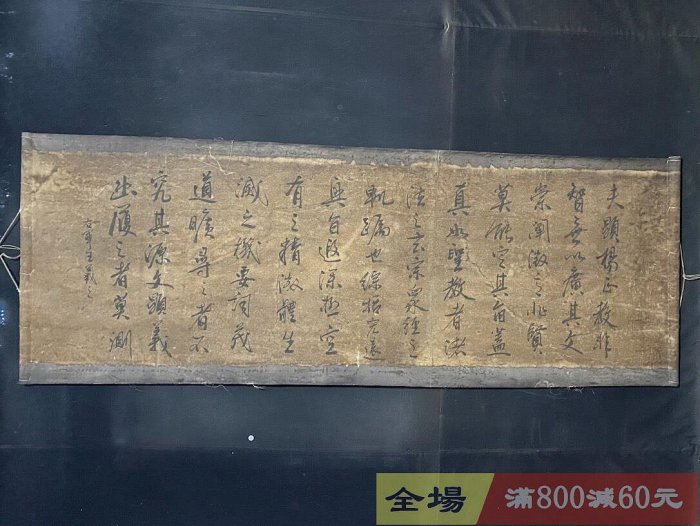 夫顯揚正教非
智無以廣其文
崇闡微言非賢
莫能定其旨蓋
真如聖教者諸
法之玄宗眾經之
軌躅也綜括宏遠
奧旨遐深極空
有之精微體生
滅之機要詞茂
道曠尋之者不
究其源文顯義
幽履之者莫測
王羲之
全場
滿800減60元